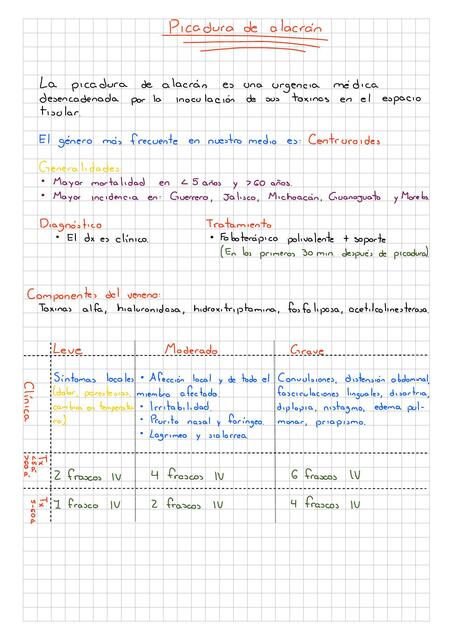 Picadura de alacrán
La picadura de alacrán es una urgencia médica
desencadenada por la inoculación de sus toxinas en el espacio
tisular.
El género más frecuente en nuestro medio es: Centruroides
Generalidades
• Mayor mortalidad en <5 años y >60 años.
• Mayor incidencia en: Guerrero, Jalisco, Michoacán, Guanajuato y Morelos
Diagnóstico
• El dx es clínico.
Tratamiento
• Faboterápico polivalente + soporte
(En los primeros 30 min después de picadura)
Componentes del veneno:
Toxinas alfa, hialuronidasa, hidroxitriptamina, fosfolipasa, acetilcolinesterasa.
Leve Moderado Grave
Clínica
Síntomas locales
(dolor, parestesias,
cambios en temperatu
ra)
• Afección local y de todo el
miembro afectado.
• Irritabilidad.
• Prurito nasal y faríngeo.
• Lagrimeo y sialorrea
Convulsiones, distensión abdominal,
fasciculaciones linguales, disartria,
diplopia, nistagmo, edema pul-
monar, priapismo.
Tx
<5 ó
>60 a.
2 frascos IV 4 frascos IV 6 frascos IV
Tx
5-60a
1 frasco IV 2 frascos IV 4 frascos IV